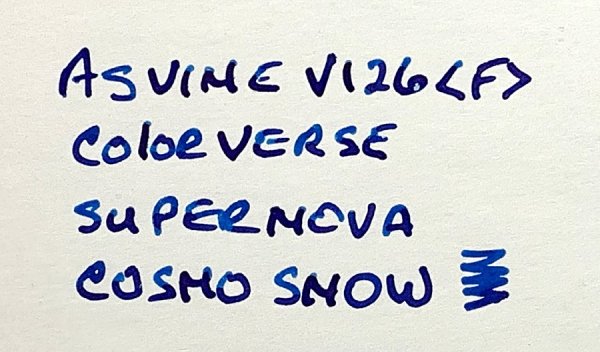 ASVINE V126 <F>
COLORVERSE
SUPERNOVA
COSMO SNOW